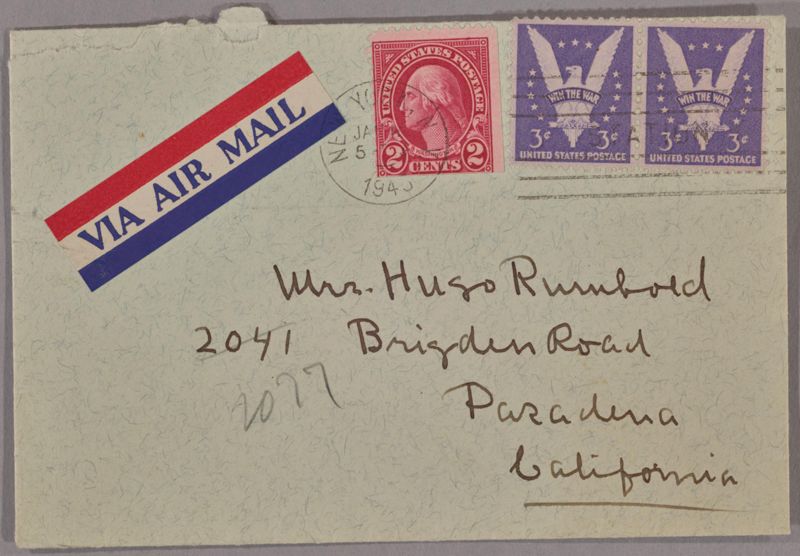 VIA AIR MAIL
UNITED STATES POSTAGE
WASHINGTON
2 CENTS 2
WIN THE WAR
3¢ 3¢
UNITED STATES POSTAGE
WIN THE WAR
3¢ 3¢
UNITED STATES POSTAGE
JA
5
1943
Mrs. Hugo Rumbold
2041 Brigden Road
2077
Pazadena
California